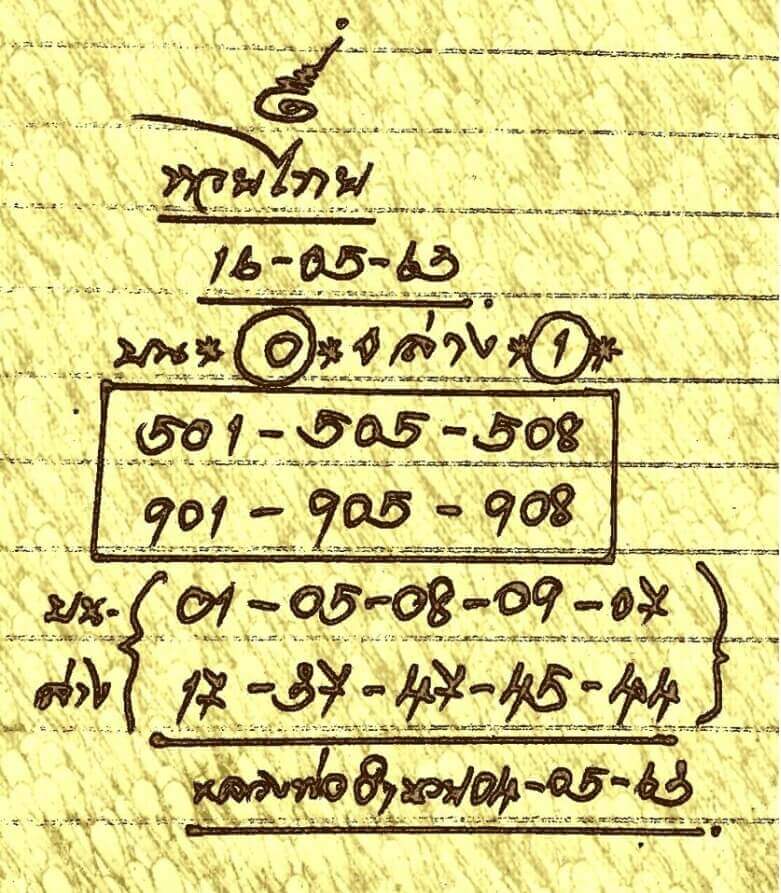 หวยไทย
16-05-63
บน * 0 * ล่าง * 1 *
501 - 505 - 508
901 - 905 - 908
บน- 01 - 05 - 08 - 09 - 07
ล่าง 17 - 37 - 47 - 45 - 44
หลวงพ่อ 04-05-63